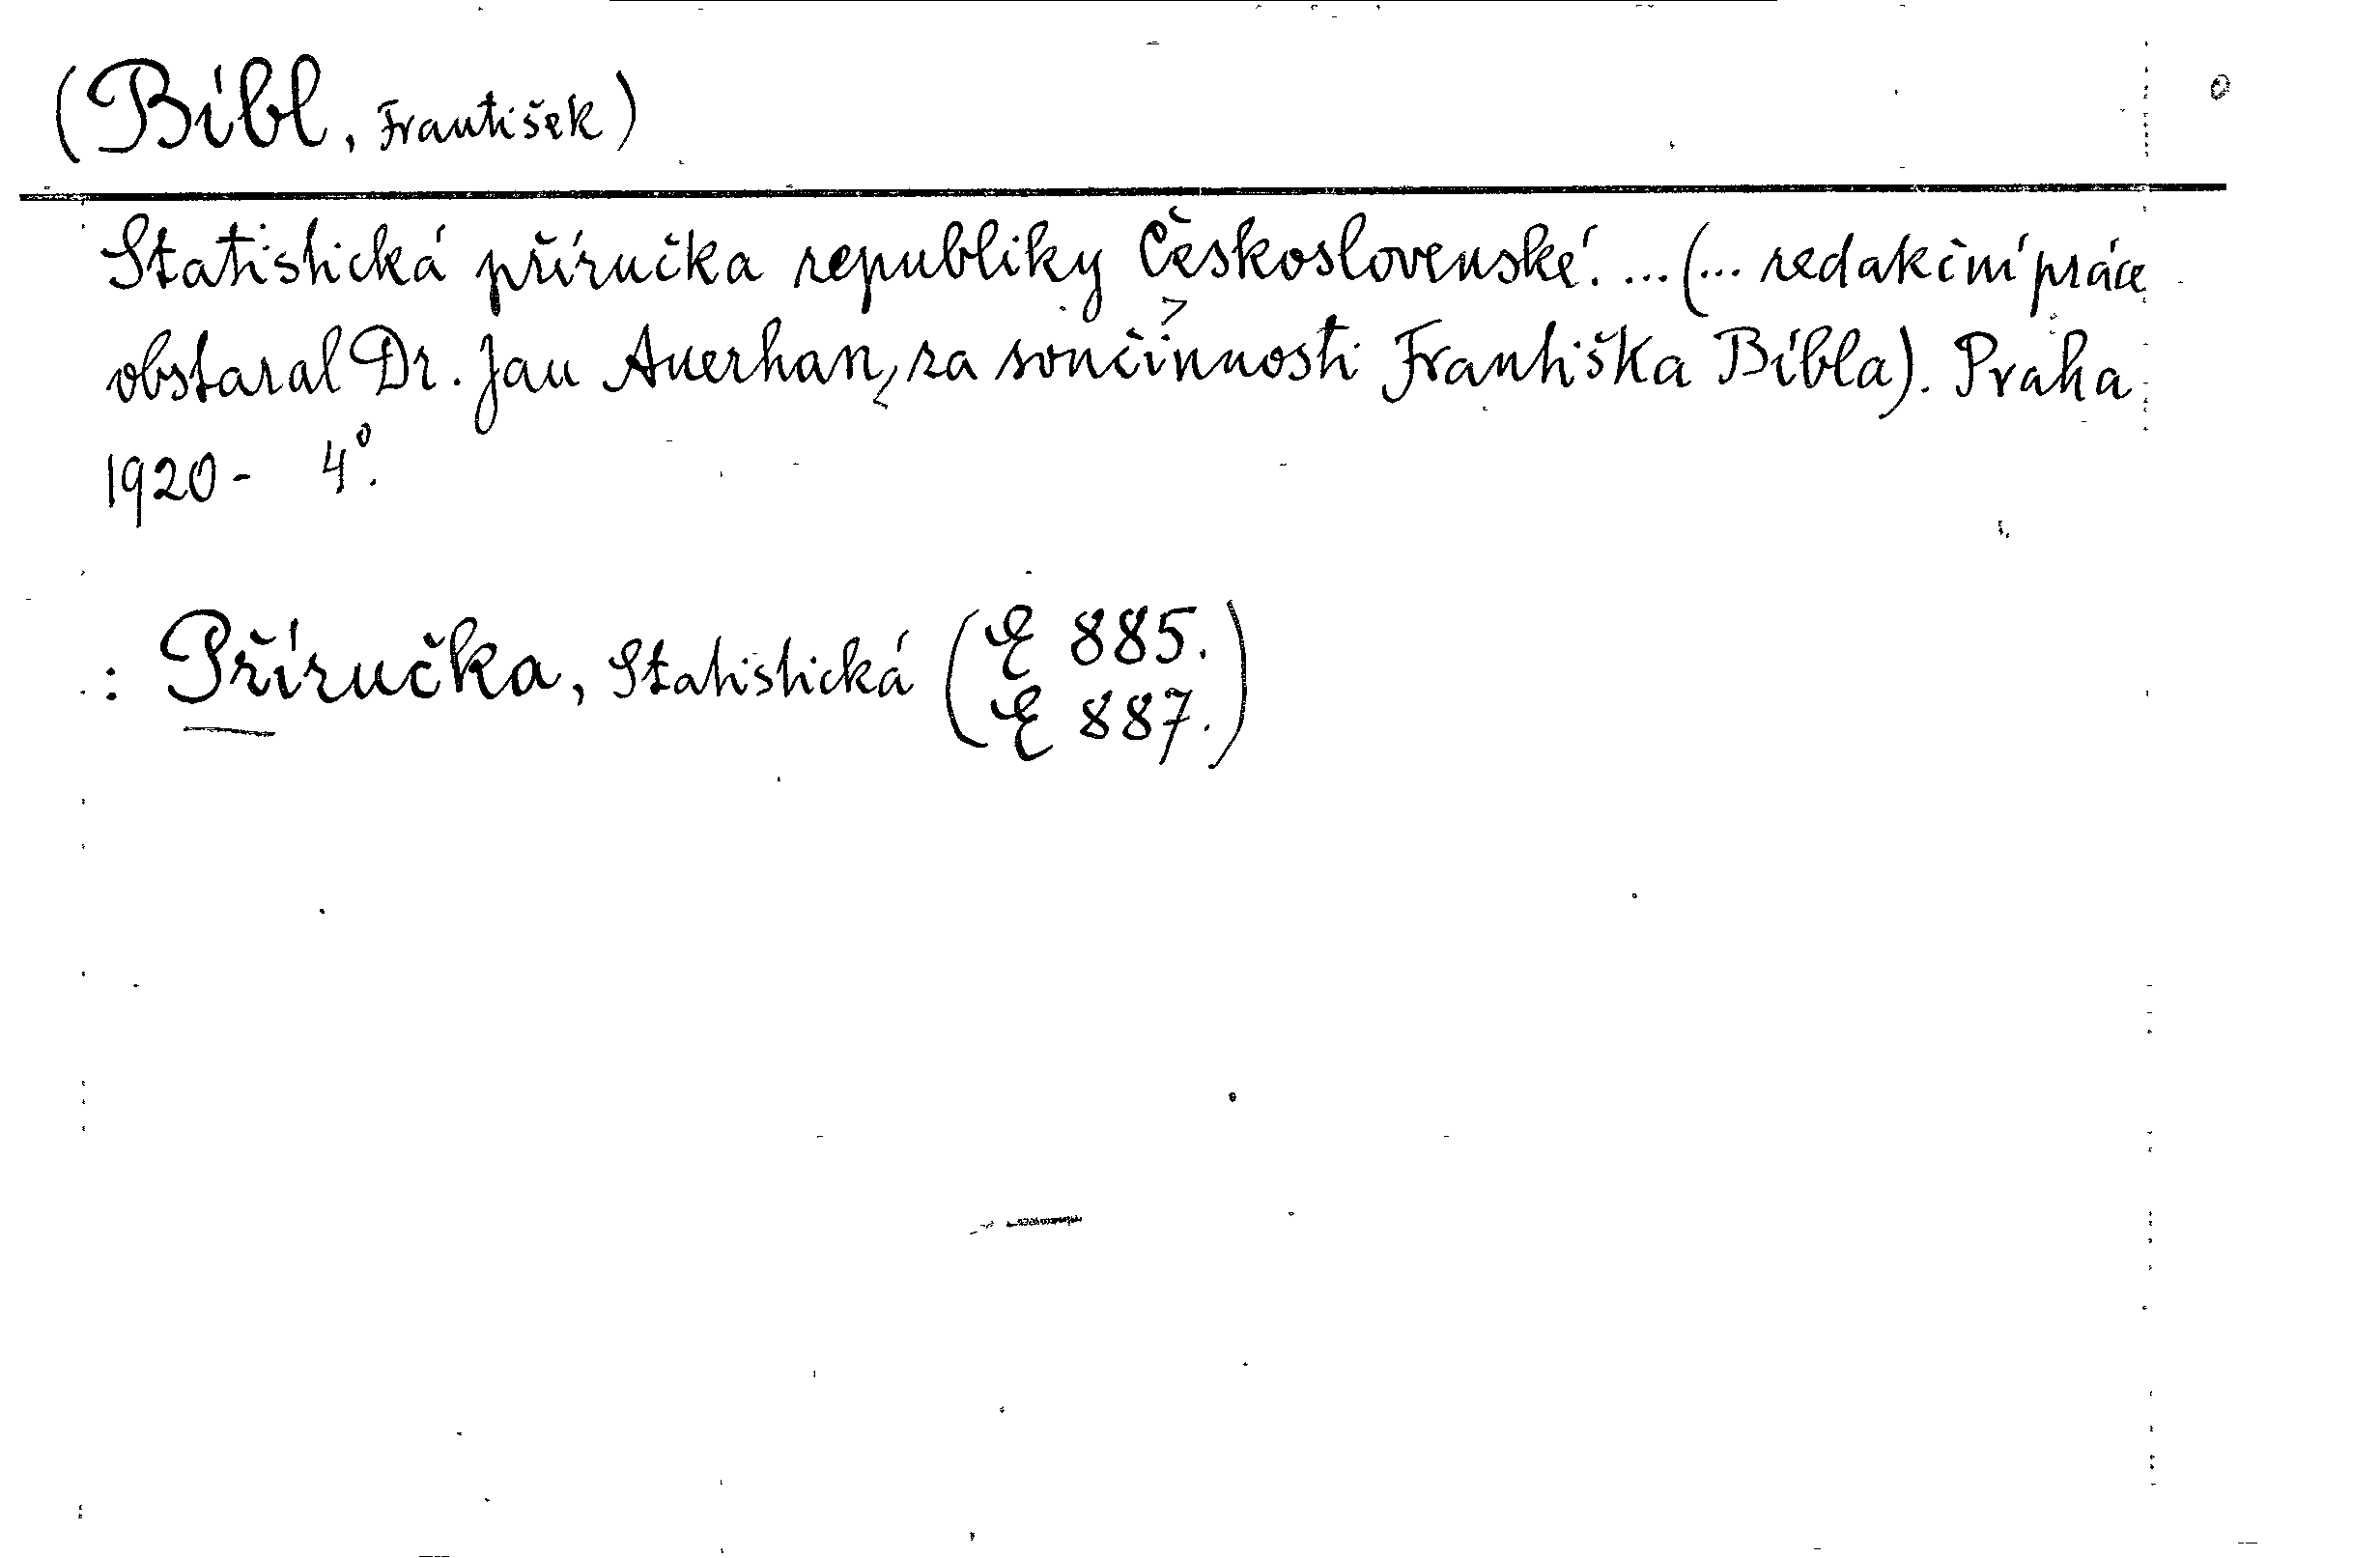 (Bibl, František)
Statistická příručka republiky Československé. ... (... redakční práce
obstaral Dr. Jan Auerhan, za součinnosti Františka Bibla). Praha
1920- 4°.
: Příručka, Statistická (E 885.
E 887.)